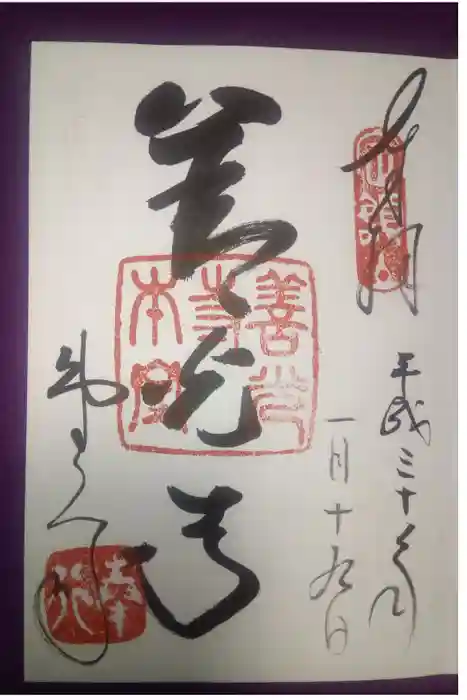 奉拝
平成三十年
一月十九日
善光寺
善光
寺
本堂